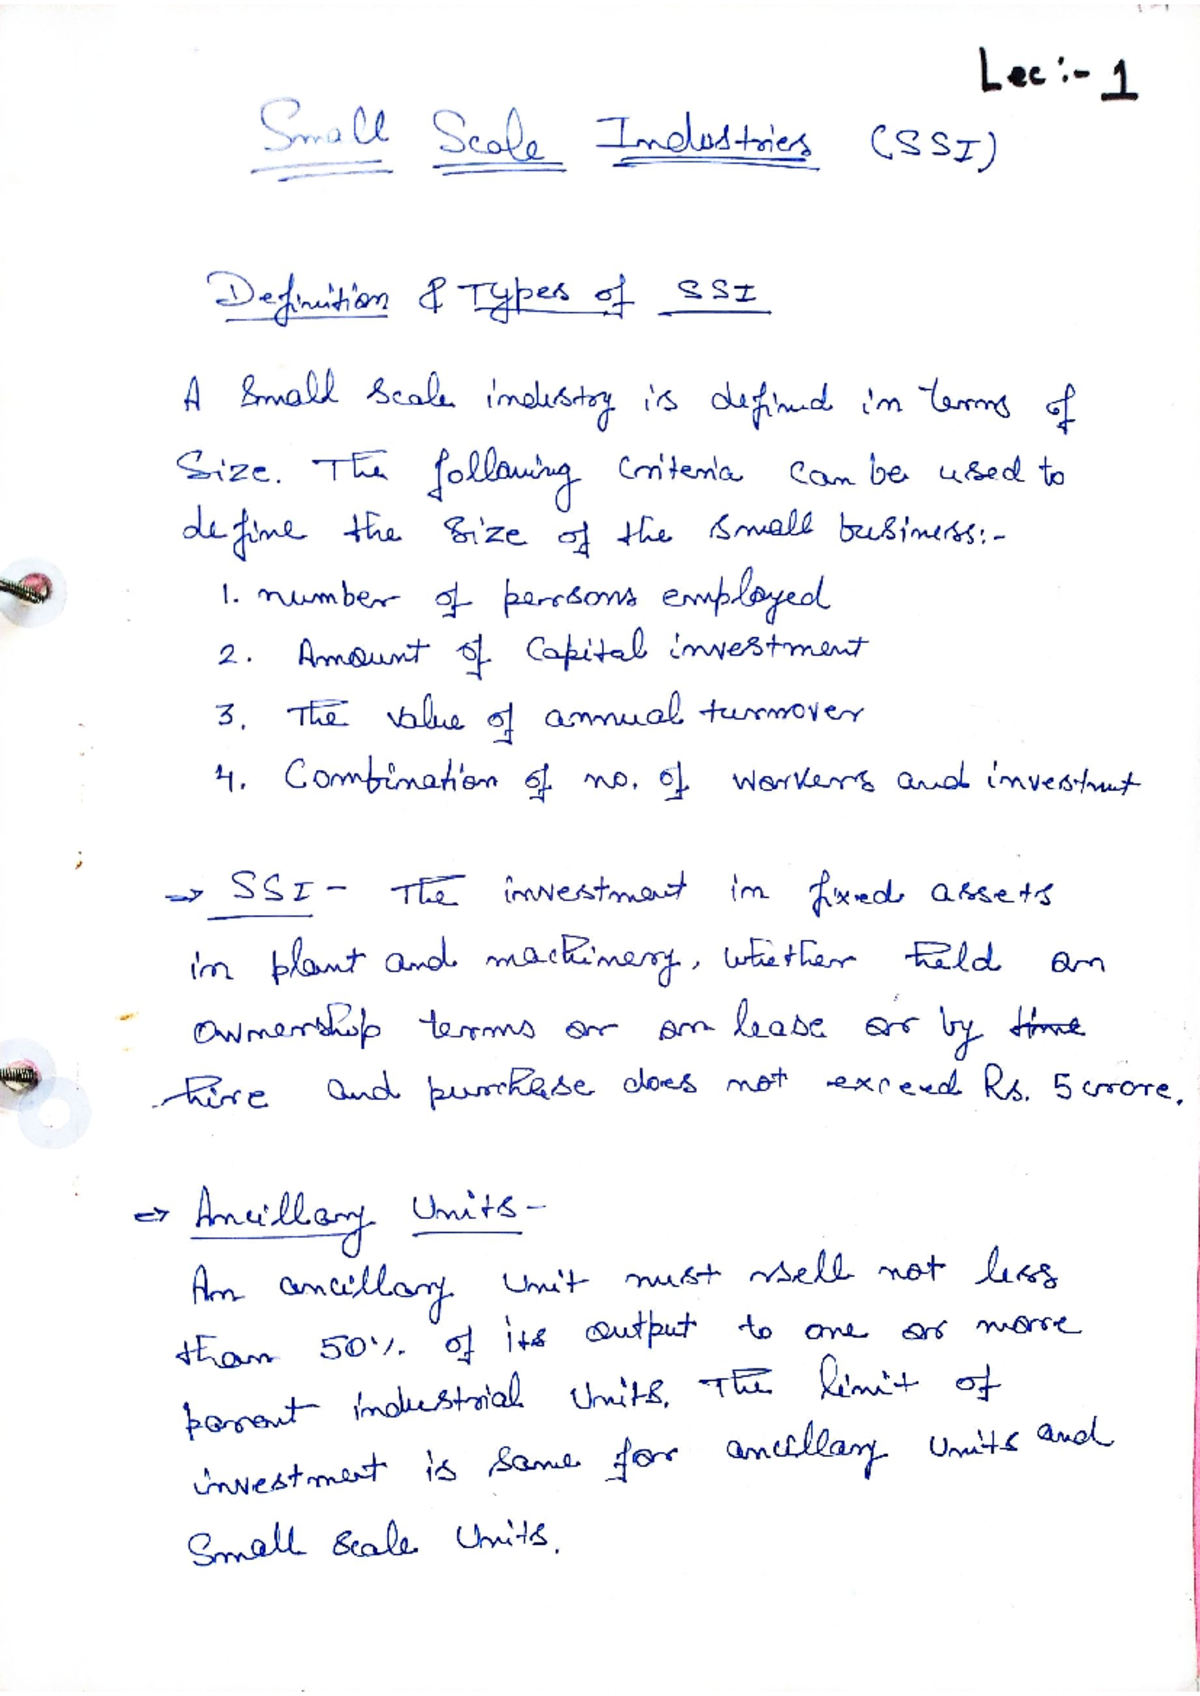 Lec :- 1
Small Scale Industries (SSI)
Definition & Types of SSI
A Small Scale industry is defined in terms of
Size. The following Criteria Can be used to
define the Size of the small business:-
1. number of persons employed
2. Amount of Capital investment
3. The value of annual turnover
4. Combination of no. of workers and investmt
→ SSI - The investment in fixed assets
in plant and machinery, whether held on
ownership terms or on lease or by time
hire and purchase does not exceed Rs. 5 crore.
⇒ Ancillary Units -
An ancillary Unit must sell not less
than 50% of its output to one or more
parent industrial Units. The limit of
investment is same for ancillary units and
Small Scale Units.